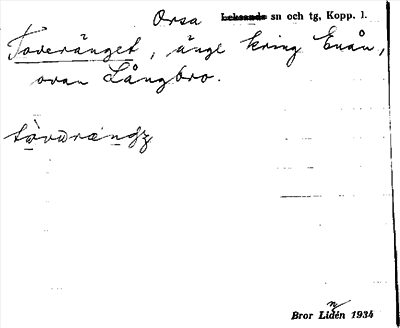 Orsa Leksands sn och tg, Kopp. l.
Toveränget, änge kring Enån,
ovan Långbro.
Bror Lidén 1934